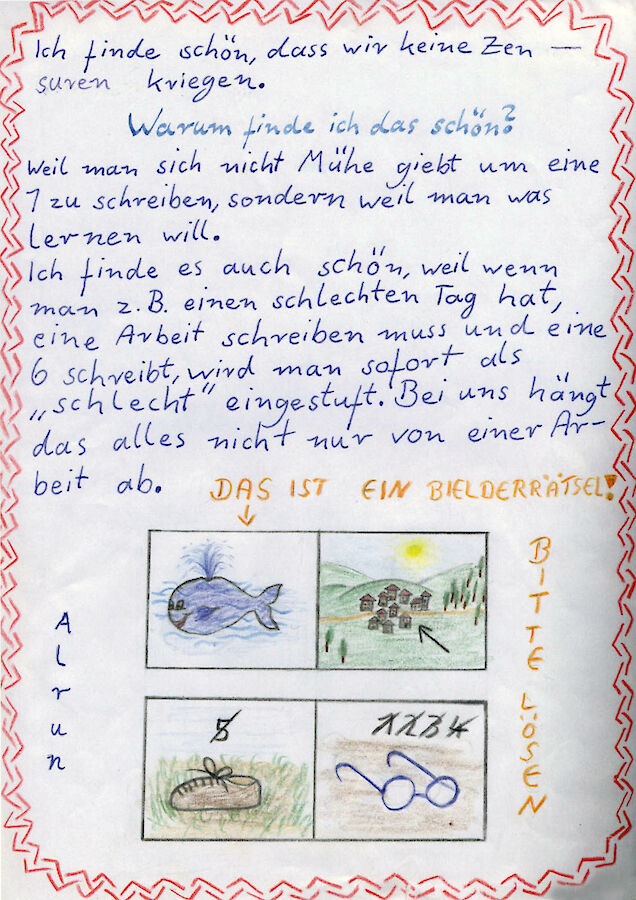 Ich finde schön, dass wir keine Zen —
suren kriegen.
Warum finde ich das schön?
Weil man sich nicht Mühe giebt um eine
1 zu schreiben, sondern weil man was
lernen will.
Ich finde es auch schön, weil wenn
man z.B. einen schlechten Tag hat,
eine Arbeit schreiben muss und eine
6 schreibt, wird man sofort als
„schlecht“ eingestuft. Bei uns hängt
das alles nicht nur von einer Ar-
beit ab.
DAS IST EIN BIELDERRÄTSEL!
BITTE LÖSEN
Alrun
5
1 2 3 4